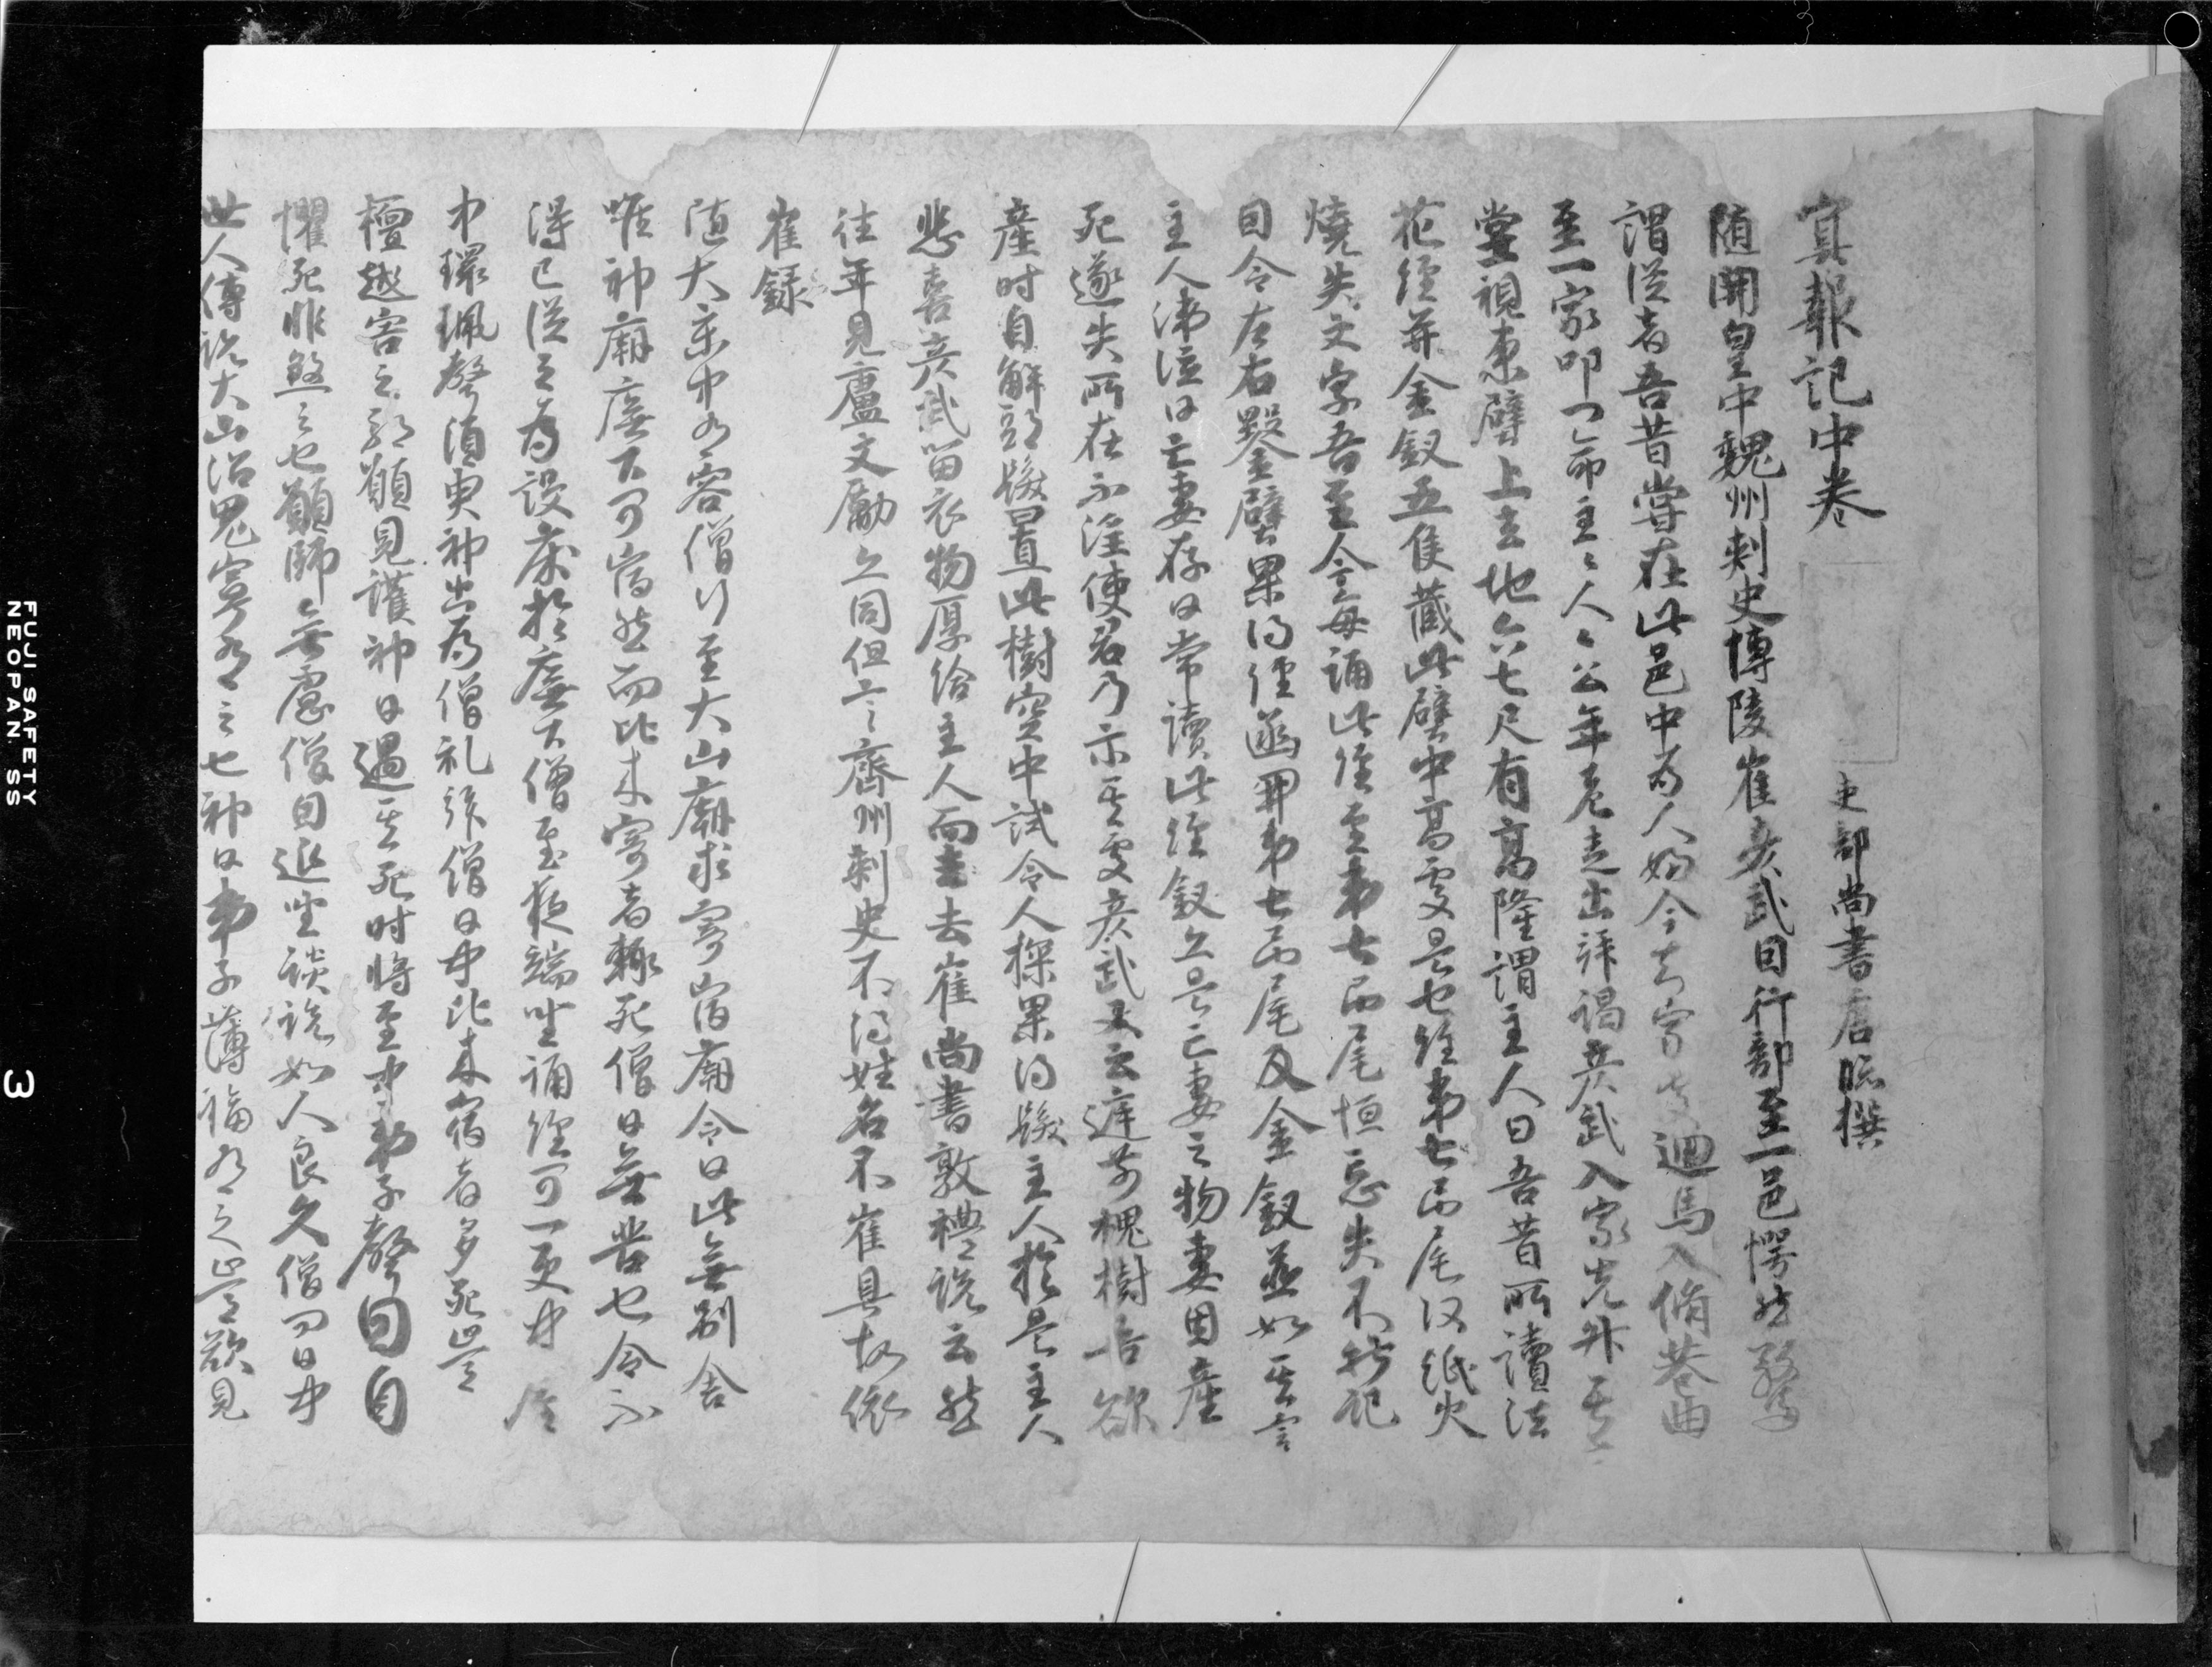 冥報記中卷
吏部尚書唐臨撰
隨開皇中魏州刺史博陵崔彦武因行部至一邑愕然驚
謂從者吾昔嘗在此邑中爲人婦今知家處迴馬入脩巷曲
至一家叩門命主〻人〻公年老走出拜謁彦武入家先升其
堂視東壁上去地六七尺有高隆謂主人曰吾昔所讀法
花經并金釵五隻藏此壁中高處是也經第七卷尾後紙火
燒失文字吾至今每誦此經至第七卷尾恒忘失不能記
因令左右鑿壁果得經函開第七卷尾及金釵並如其言
主人涕泣曰亡妻存日常讀此經釵亦是亡妻之物妻因產
死遂失所在不淫使君乃示其處彦武又云庭前槐樹吾欲
產時自解頭髮置此樹空中試令人探果得髮主人於是主人
悲喜彦武留衣物厚給主人而去去崔尚書敦禮說云然
往年見盧文勵亦同但言齊州刺史不得姓名不崔具故依
崔録
隨大業中有客僧行至大山廟求寄宿廟令曰此無別舍
唯神廟廡下可宿然而比來寄者輒死僧曰無苦也令不
得已從之爲設床於廡下僧至夜端坐誦經可一更中屋
中環珮聲須臾神出爲僧礼拜僧曰中比來宿者多死豈
檀越害之耶願見護神曰遇其死時將至中弟子聲因自
懼死非煞之也願師無慮僧因延坐談說如人良久僧問曰中
世人傳說大山治鬼寧有之也神曰弟子薄福有之豈欲見
FUJI SAFETY
NEOPAN SS
3